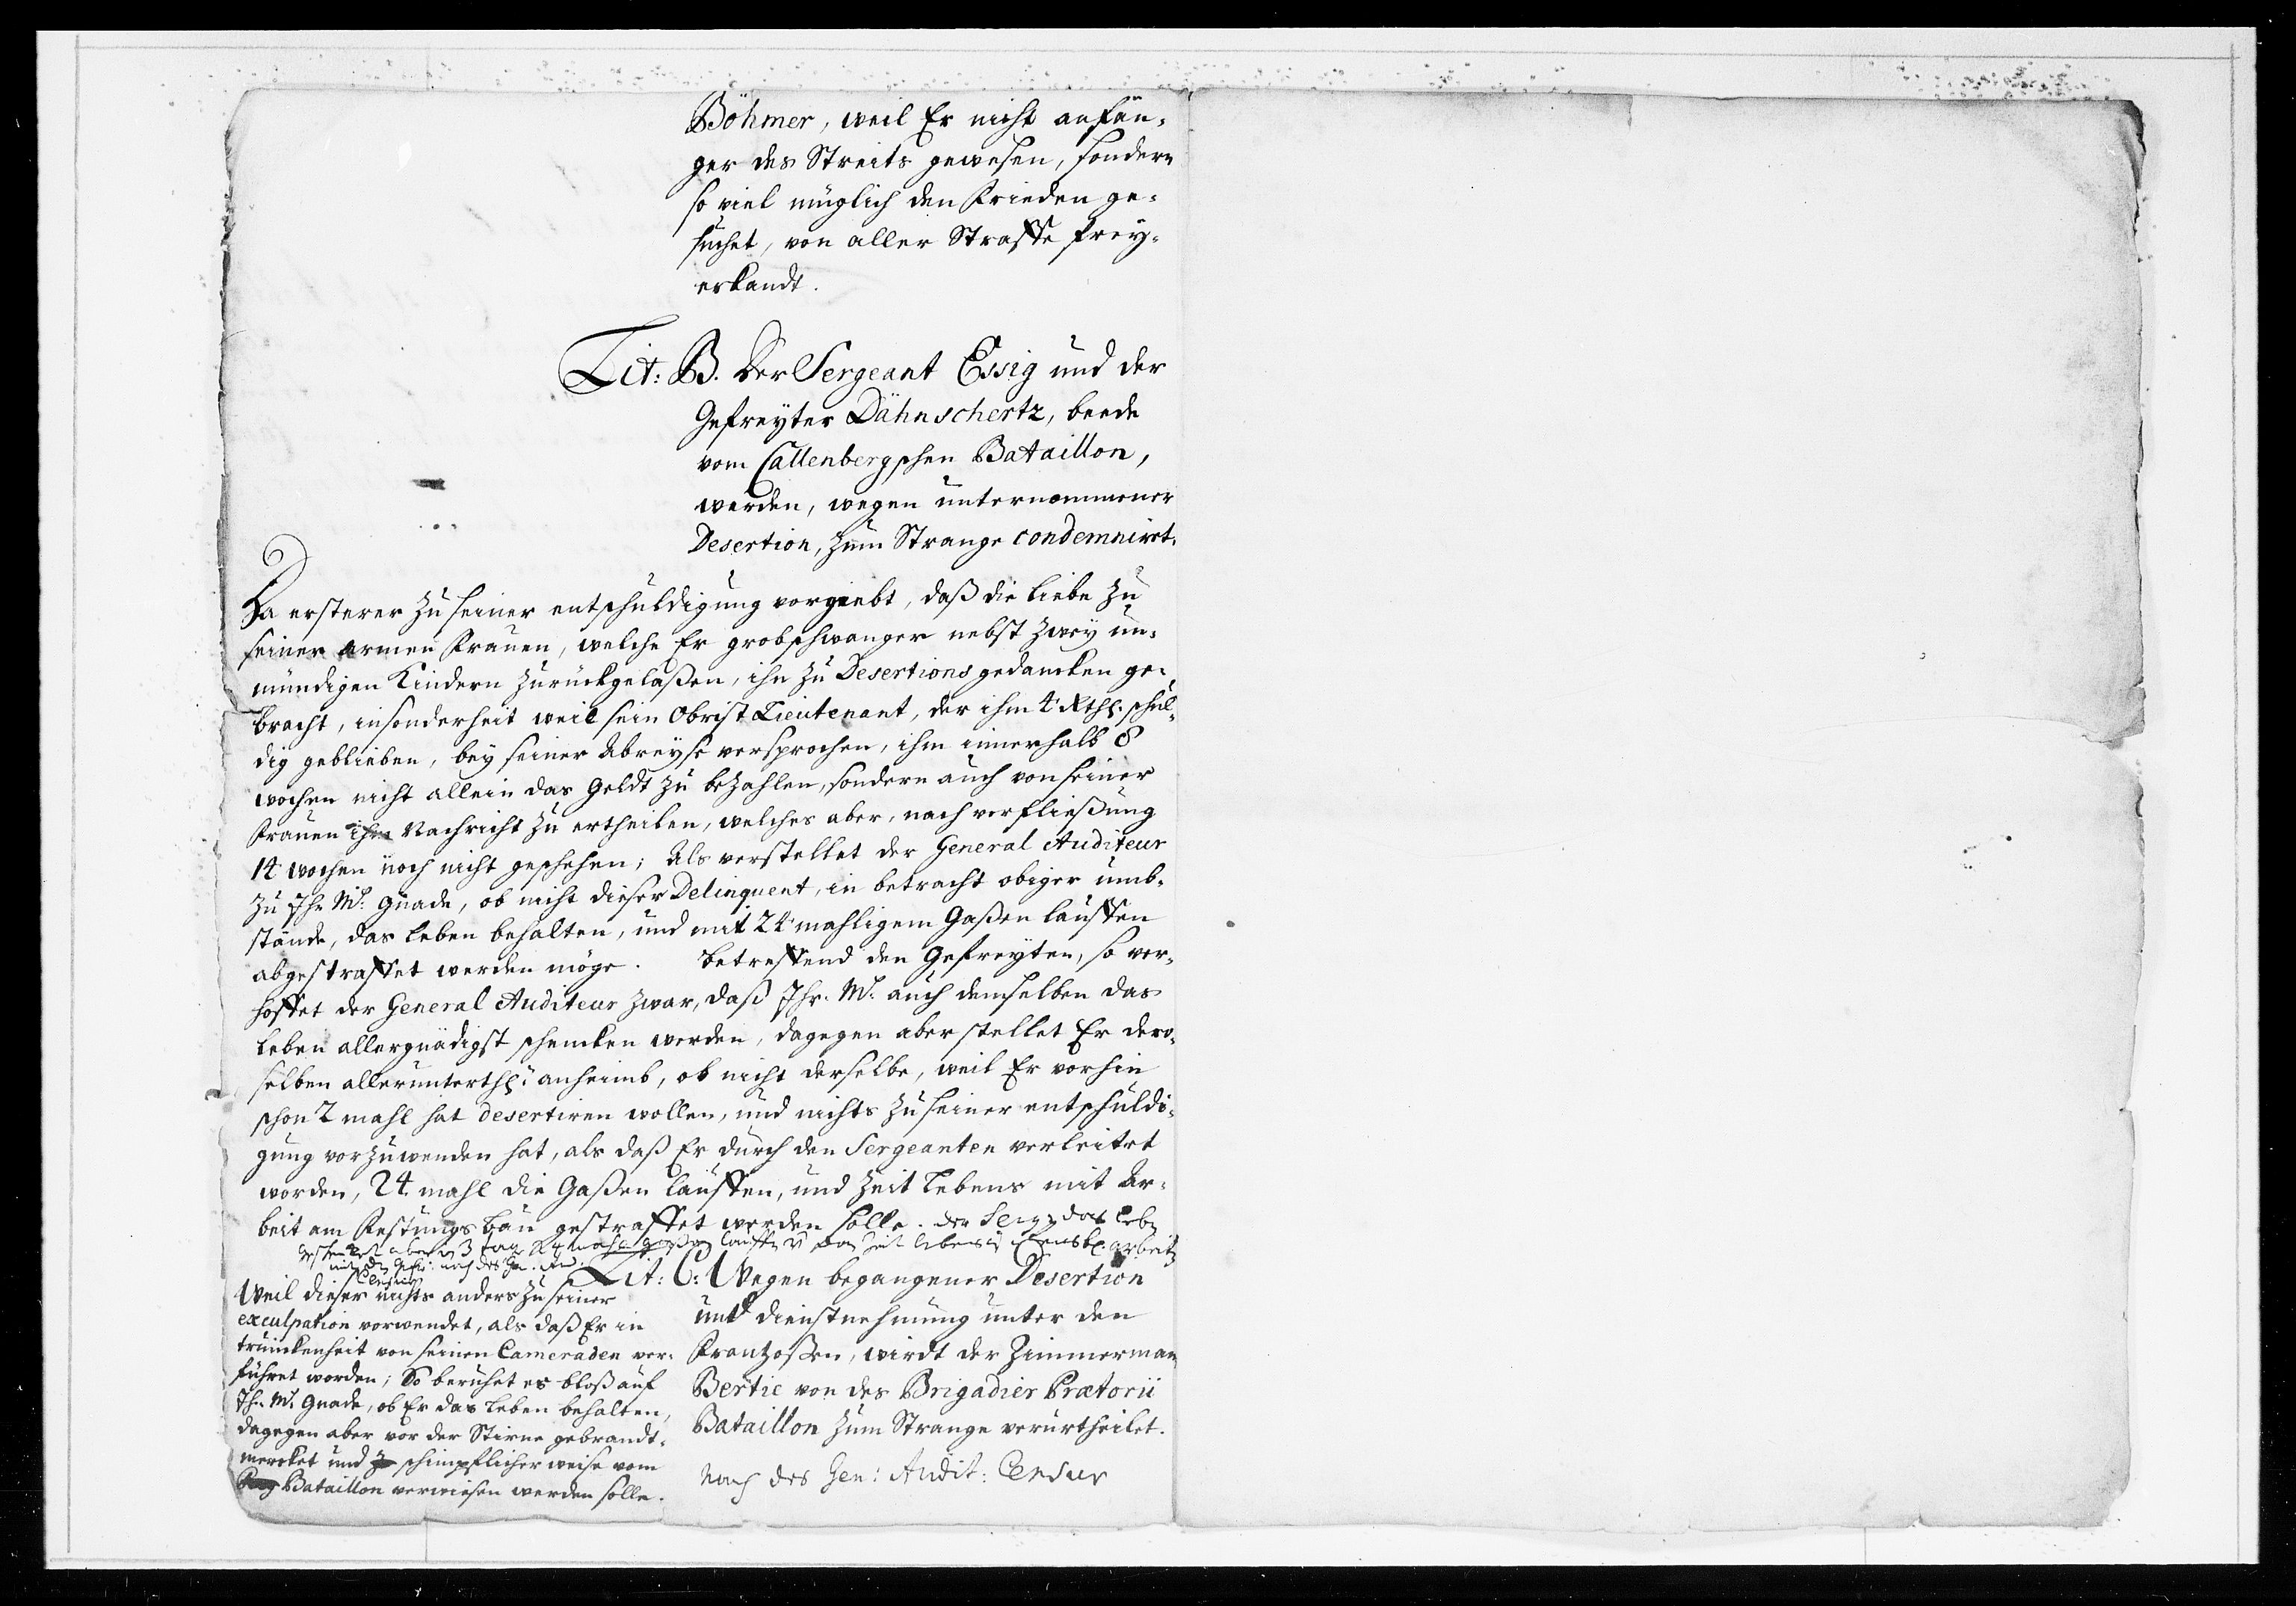 Böhmer, weil Er nicht anfän-
ger des Streits gewesen, sondern
so viel müglich den Frieden ge-
suchet, von aller Straffe frey-
erkandt.
Lit: B. Der Sergeant Essig und der
Gefreyter Dähnschertz, beede
vom Callenbergschen Bataillon,
werden, wegen unternommener
Desertion, zum Strange condemnirt.
Da ersterer zu seiner entschuldigung vorgiebt, daß die Liebe zu
seiner armen Frauen, welche Er grobschwanger nebst zwey un-
mündigen Kindern zurückgelaßen, ihn zu Desertions gedancken ge-
bracht, insonderheit weil sein Obrist Lieutenant, der ihm 4 Rthl. schul-
dig geblieben, bey seiner Abreyse versprochen, ihm innerhalb 8
wochen nicht allein das Geldt zu bezahlen, sondern auch von seiner
Frauen ihm Nachricht zu ertheilen, welches aber, nach verfließung
14 wochen noch nicht geschehen; Als verstellet der General Auditeur
zu Ihr. M. Gnade, ob nicht dieser Delinquent, in betracht obiger umb-
stände, das Leben behalten, und mit 24 mahligem Gaßen lauffen
abgestraffet werden möge. Betreffend den Gefreyten, so ver-
hoffet der General Auditeur zwar, daß Ihr. M. auch demselben das
Leben allergnädigst schencken werden, dagegen aber stellet Er dero-
selben allerunterthl. anheimb, ob nicht derselbe, weil Er vorhin
schon 2 mahl hat desertiren wollen, und nichts zu seiner entschuldi-
gung vorzuwenden hat, als daß Er durch den Sergeanten verleitet
worden, 24 mahl die Gaßen lauffen, und Zeit Lebens mit Ar-
beit am Festungs Bau gestraffet werden solle. der Serg. das Leb
aber 3 tag 24 mahl gaßen lauffen Zeit lebens arbeit
mit den Gefr: nach des Gen. Aud.
Censur
Lit: C: Wegen begangener Desertion
und dienstnehmung unter den
Frantzoßen, wirdt der Zimmerman
Bertie von des Brigadier Prætorii
Bataillon zum Strange verurtheilet.
Nach des Gen: Audit: Censur
Weil dieser nichts anders zu seiner
exculpation vorwendet, als daß Er in
trunckenheit von seinen Cameraden ver-
führet worden; So beruhet es bloß auf
Ihr. M. Gnade, ob Er das Leben behalten,
dagegen aber vor der Stirne gebrandt-
mercket und schimpflicher weise vom
Bataillon verwiesen werden solle.